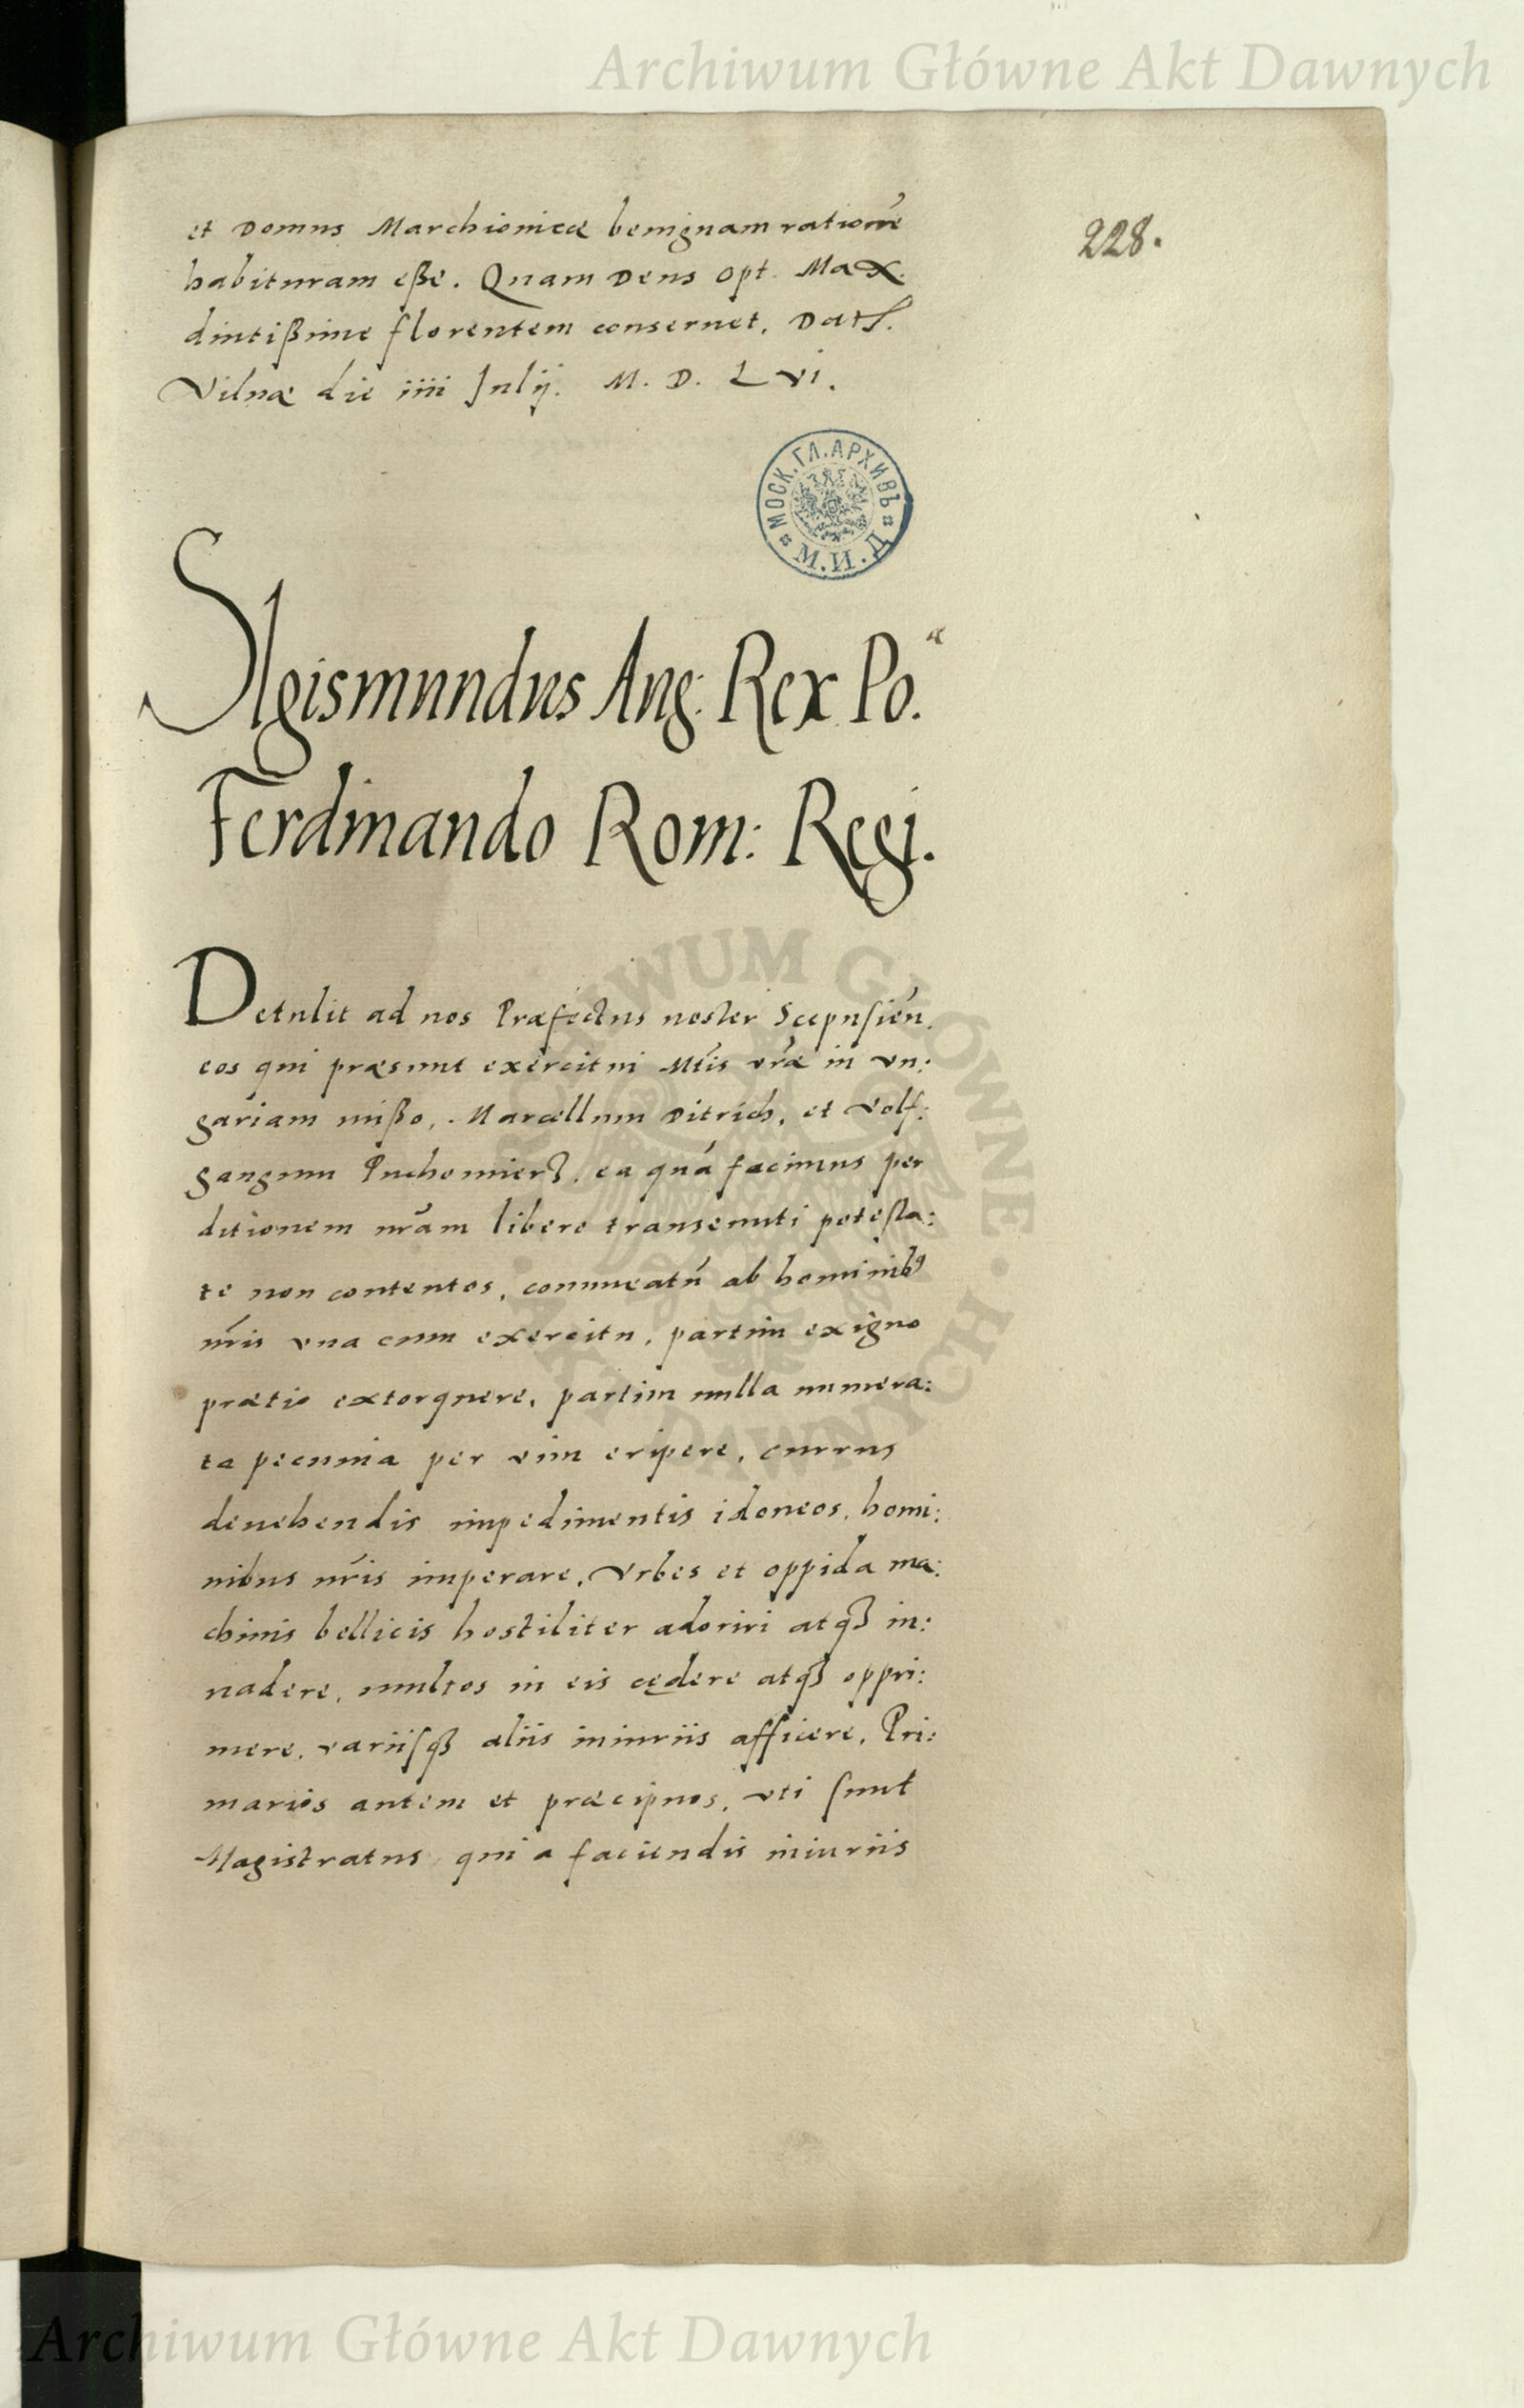 Archiwum Główne Akt Dawnych
228.
et Domus Marchionicæ benignam rationẽ
habituram eße. Quam Deus Opt. Max.
diutißime florentem conseruet. Dat.
Vilnæ die iiii Julij. M. D. L vi.
МОСК. ГЛ. АРХИВЪ
М. И. Д
SIgismundus Aug. Rex Po.
Ferdinando Rom: Regi.
Detulit ad nos Præfectus noster Scepusień.
eos qui præsunt exercitui Mtis vræ in Vn:
gariam mißo, Marcellum Ditrich, et Volf:
gangum ea quã facimus per
ditionem nrãm libere transeunti potesta:
te non contentos, conmeatũ ab hominib9
nr̃is vna cum exercitu, partim exiguo
prætio extorquere, partim nulla numera:
ta pecunia per vim eripere, currus
deuehendis impedimentis idoneos, homi:
nibus nr̃is imperare, Vrbes et oppida ma:
chinis bellicis hostiliter adoriri atqꝫ in:
uadere, multos in eis cędere atqꝫ oppri:
mere, variisqꝫ aliis iniuriis afficere, Pri:
marios autem et præcipuos, vti sunt
Magistratus, qui a faciendis iniuriis
ARCHIWUM GŁÓWNE AKT DAWNYCH
Archiwum Główne Akt Dawnych